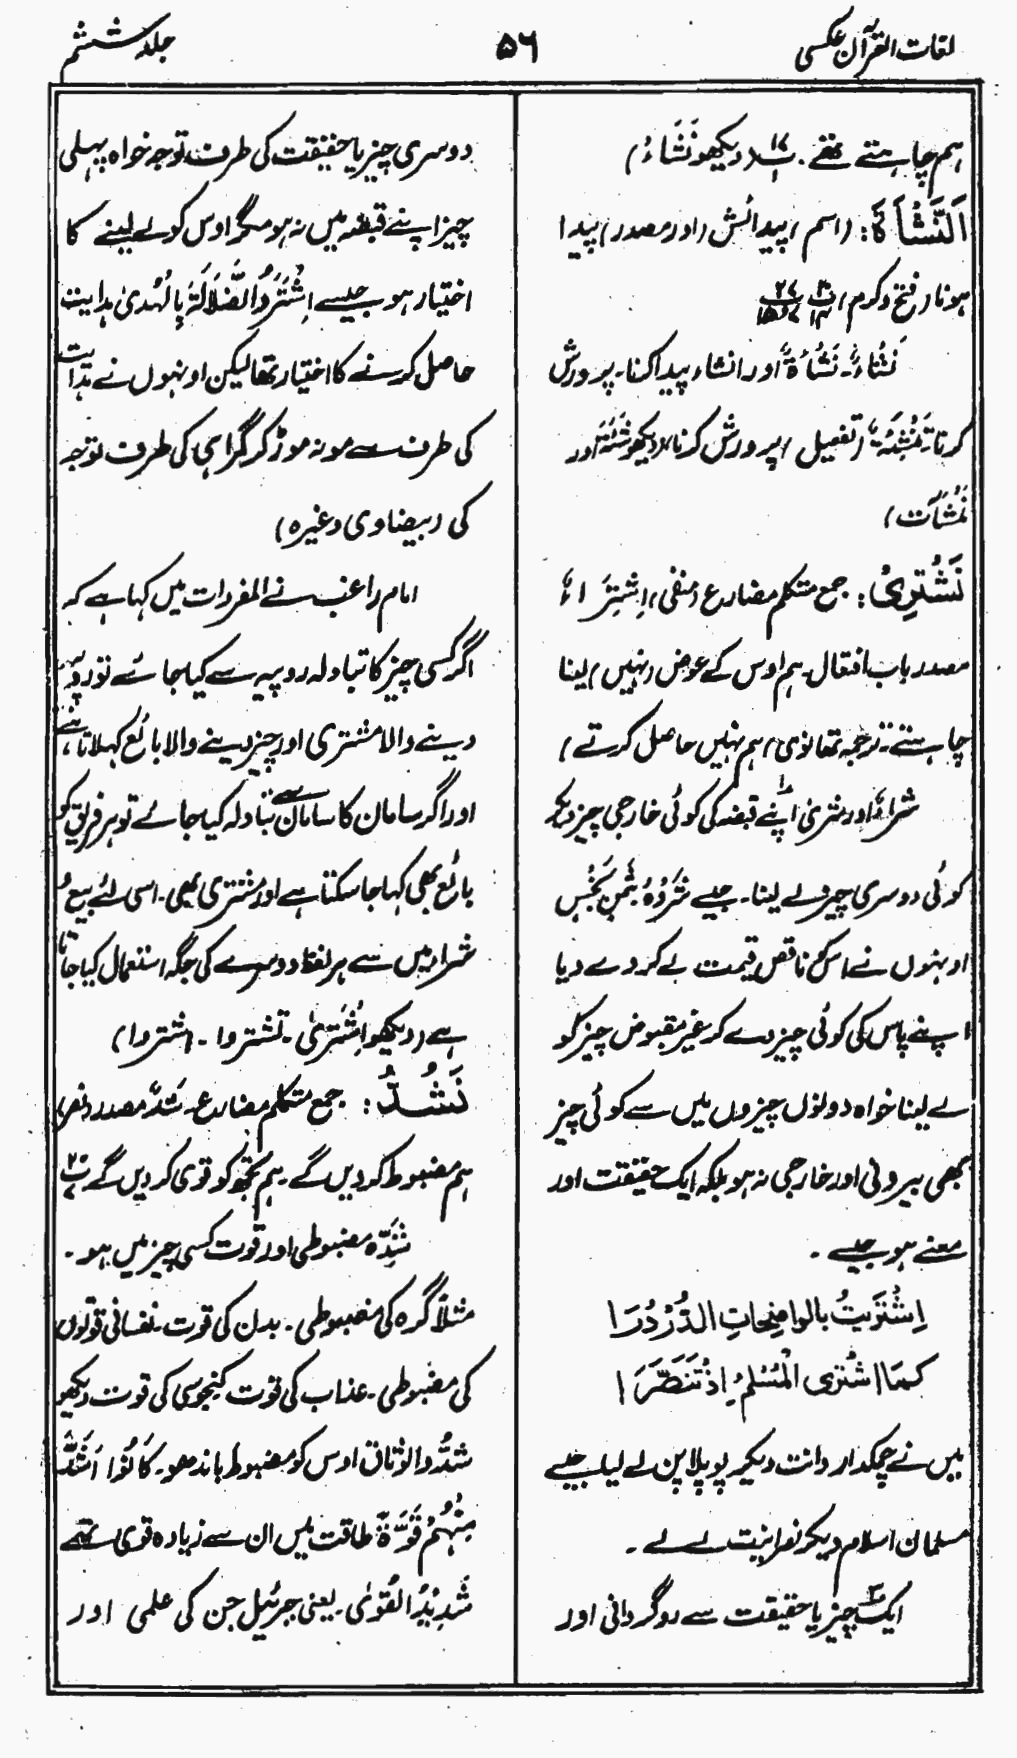 لغات القرآن عکسی
۵۶
جلد ششم
ہم چاہتے تھے۔ پ۱۷ (دیکھو نَشَاءُ)
اَلنَّشْأَةَ: (اسم) پیدائش (اور مصدر) پیدا
ہونا (فتح و کرم)
نَشْاءٌ۔ نَشْاءَةٌ اور انشاء پیدا کرنا۔ پرورش
کرنا تَنْشِئَةٌ (تفعیل) پرورش کرنا (دیکھو نَشْئَةَ اور
نُشَآت)
نَشْتَرِیْ: جمع متکلم مضارع (منفی) اِشْتِرَاءٌ
مصدر باب افتعال۔ ہم اوس کے عوض (نہیں) لینا
چاہتے۔ ترجمہ تھانوی) ہم نہیں حاصل کرتے)
شراءٌ اور شریٰ اپنے قبضہ کی کوئی خارجی چیز دیکر
کوئی دوسری چیز لے لینا۔ جیسے شَرَوْہُ بِثَمَنٍ بَخْسٍ
اونہوں نے اس کو ناقص قیمت لے کر دے دیا
اپنے پاس کی کوئی چیز دے کر غیر مقبوض چیز کو
لے لینا خواہ دونوں چیزوں میں سے کوئی چیز
بھی بیرونی اور خارجی نہ ہو بلکہ ایک حقیقت اور
معنے ہو جیسے۔
اِشْتَرَیتُ بالواضِحاتِ الدُّرْدُرَا
کمَا اشْتَرَی الْمُسْلِمُ اِذْ تَنَصَّرَا
میں نے چمکدار دانت دیکر پوپلاپن لے لیا جیسے
مسلمان اسلام دیکر نصرانیت لے لے۔
ایک چیز یا حقیقت سے روگردانی اور
دوسری چیز یا حقیقت کی طرف توجہ خواہ پہلی
چیز اپنے قبضہ میں نہ ہو مگر اوس کو لے لینے کا
اختیار ہو جیسے اِشْتَرَوُا الضَّلَالَةَ بِالْہُدیٰ ہدایت
حاصل کرنے کا اختیار تھا لیکن اونہوں نے ہدایت
کی طرف سے مونہ موڑ کر گمراہی کی طرف توجہ
کی (بیضاوی وغیرہ)
امام راغب نے المفردات میں کہا ہے کہ
اگر کسی چیز کا تبادلہ روپیہ سے کیا جائے تو روپیہ
دینے والا مشتری اور چیز دینے والا بائع کہلاتا ہے
اور اگر سامان کا سامان سے تبادلہ کیا جائے تو ہر فریق کو
بائع بھی کہا جا سکتا ہے اور مشتری بھی۔ اسی لئے بیع و
شراء میں سے ہر لفظ دوسرے کی جگہ استعمال کیا جاتا
ہے (دیکھو اِشْتَریٰ۔ تشتروا۔ اشتروا)
نَشُدُّ: جمع متکلم مضارع۔ شَدٌّ مصدر (نصر)
ہم مضبوط کر دیں گے۔ ہم تجھ کو قوی کر دیں گے پ۲۰
شِدَّہ مضبوطی اور قوت کسی چیز میں ہو۔
مثلاً گرہ کی مضبوطی۔ بدن کی قوت۔ نفسانی قوتوں
کی مضبوطی۔ عذاب کی قوت کنجوسی کی قوت دیکھو
شدُّوا الوثاق اوس کو مضبوط باندھو۔ کَانُوا اَشَدَّ
مِنْہُمْ قُوَّةً طاقت میں ان سے زیادہ قوی تھے
شَدِیْدُ الْقُویٰ۔ یعنی جبرئیل جن کی علمی اور